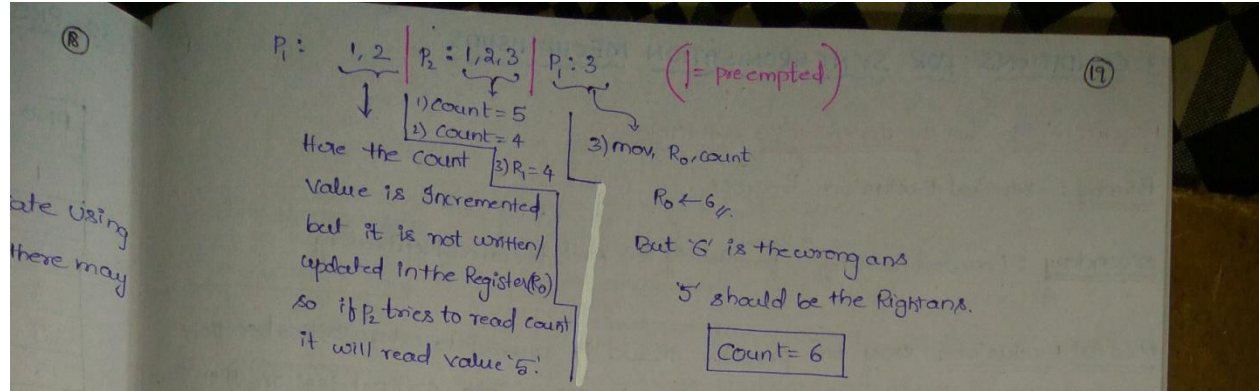 18
19
P1: 1,2 | P2: 1,2,3 | P1: 3 (|= preempted)
1) count = 5
2) count = 4
3) R1 = 4
Here the count
value is Incremented
but it is not written/
updated in the Register(R0)
so if P2 tries to read count
it will read value '5'.
3) mov, R0, count
R0 ← 6
But '6' is the wrong ans
'5' should be the Right ans.
Count = 6
ate using
there may